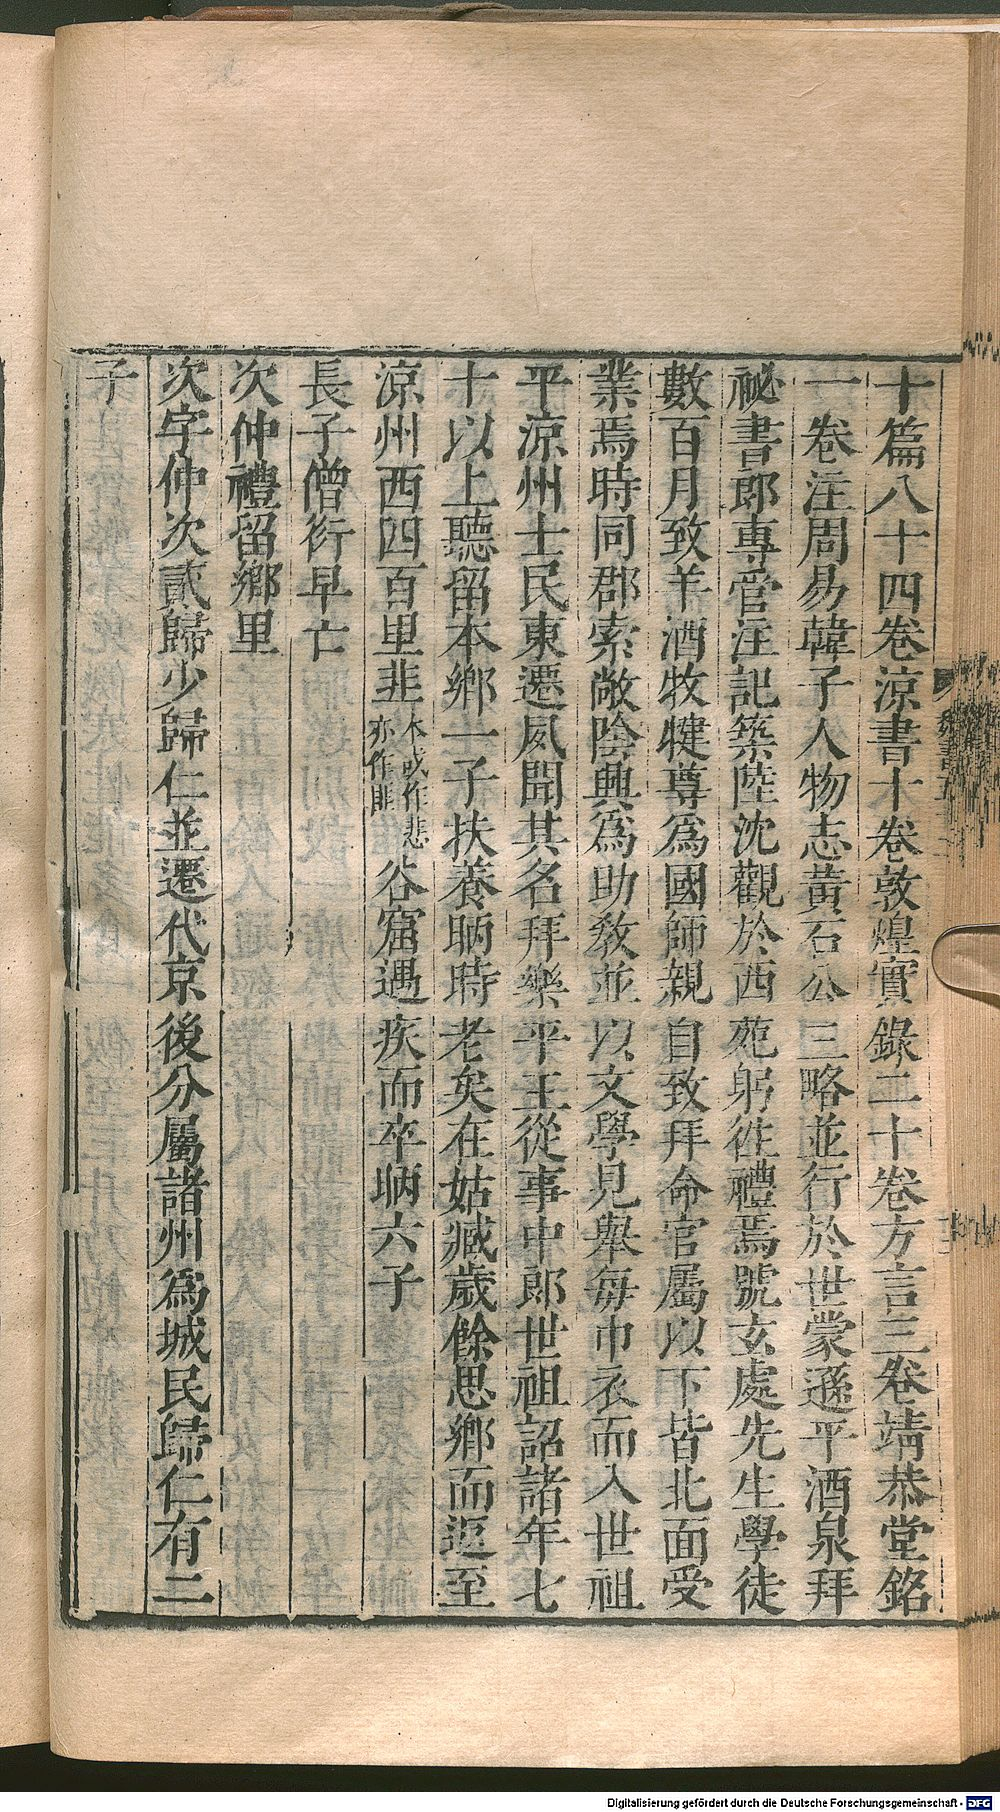 十篇八十四卷涼書十卷敦煌實錄二十卷方言三卷靖恭堂銘
一卷注周易韓子人物志黃石公三略並行於世蒙遜平酒泉拜
祕書郎專管注記築陸沈觀於西苑躬徃禮焉號玄處先生學徒
數百月致羊酒牧犍尊爲國師親自致拜命官屬以下皆北面受
業焉時同郡索敞陰興爲助敎並以文學見舉每巾衣而入世祖
平涼州士民東遷夙聞其名拜樂平王從事中郎世祖詔諸年七
十以上聽留本鄉一子扶養昞時老矣在姑臧歲餘思鄉而返至
涼州西四百里韭本或作悲亦作韭谷窟遇疾而卒昞六子
長子僧衍早亡
次仲禮留鄉里
次字仲次貳歸少歸仁並遷代京後分屬諸州爲城民歸仁有二
子
Digitalisierung gefördert durch die Deutsche Forschungsgemeinschaft - DFG